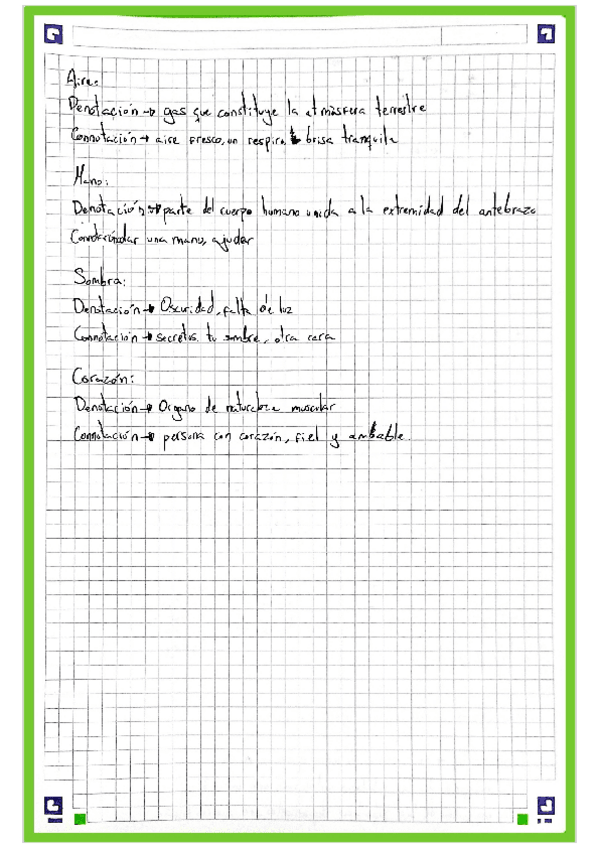 Aire:
Denotación → gas que constituye la atmósfera terrestre
Connotación → aire fresco, un respiro, brisa tranquila
Mano:
Denotación → parte del cuerpo humano unida a la extremidad del antebrazo
Connotación dar una mano, ayudar
Sombra:
Denotación → Oscuridad, falta de luz
Connotación → secretos, tu sombra, otra cara
Corazón:
Denotación → Organo de naturaleza muscular
Connotación → persona con corazón, fiel y amable.